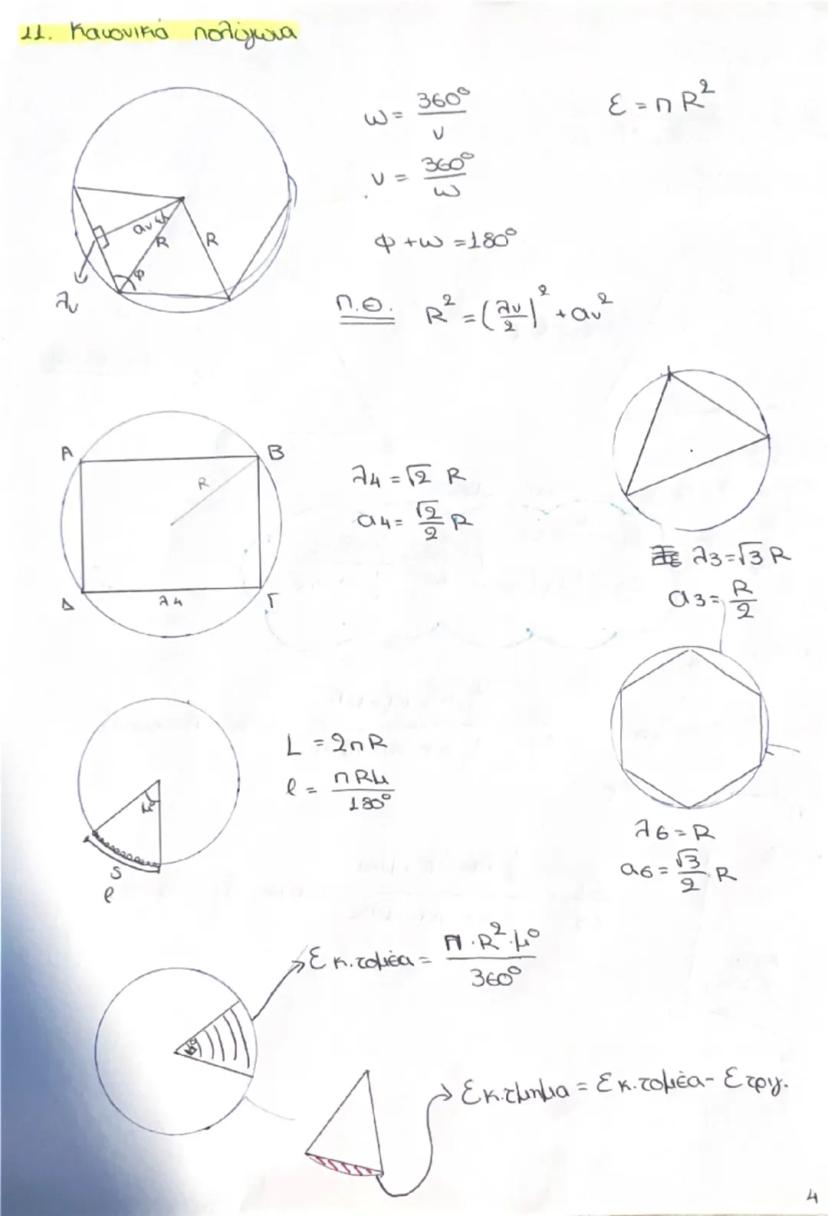 11. Κανονικά πολύγωνα
ω = 360°/ν
ν = 360°/ω
φ + ω = 180°
Ε = πR²
αν ω
R
R
φ
λν
Π.Θ. R² = (λν/2)² + αν²
Α
Β
R
Δ
λ4
Γ
λ4 = √2 R
α4 = √2/2 R
λ3 = √3 R
α3 = R/2
μ°
S
ℓ
L = 2πR
ℓ = πRμ/180°
λ6 = R
α6 = √3/2 · R
μ°
Ε κ.τομέα = π·R²·μ°/360°
Ε κ.τμημα = Ε κ.τομέα - Ε τριγ.
4